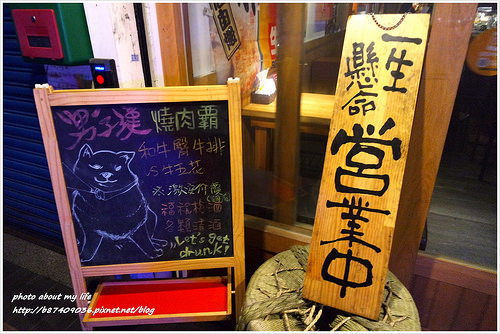 男子漢 燒肉霸
和牛臀牛排
VS牛五花
福祝桃酒
多顆清酒
Let's get
drunk!
一生
懸命
営業中
photo about my life
http://b87409036.pixnet.net/blog